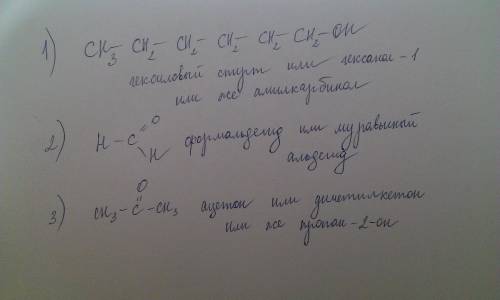 1) CH3- CH2- CH2- CH2- CH2- CH2-OH
гексиловый спирт или гексанол-1
или же амилкарбинол
2) H-C
O
H
формальдегид или муравьиный
альдегид
O
3) CH3-C-CH3 ацетон или диметилкетон
или же пропан-2-он